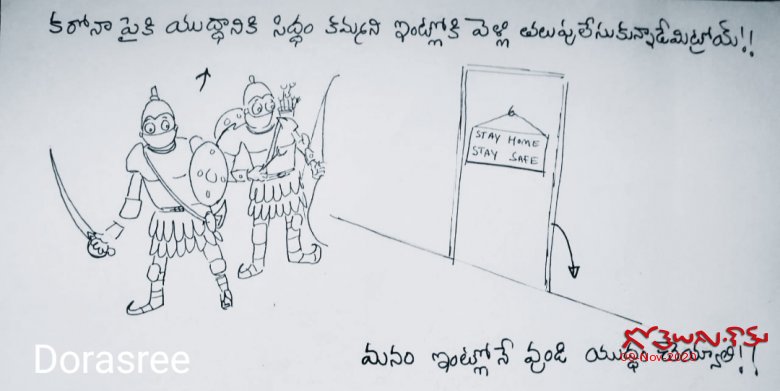 కరోనా పైకి యుద్ధానికి సిద్ధం కమ్మని ఇంట్లోకి వెళ్లి తలుపులేసుకున్నాడేమిట్రోయ్!!
STAY HOME
STAY SAFE
మనం ఇంట్లోనే వుండి యుద్ధం చేయ్యాలి!!
గోతెలుగు.కామ్
09 Nov 2020
Dorasree